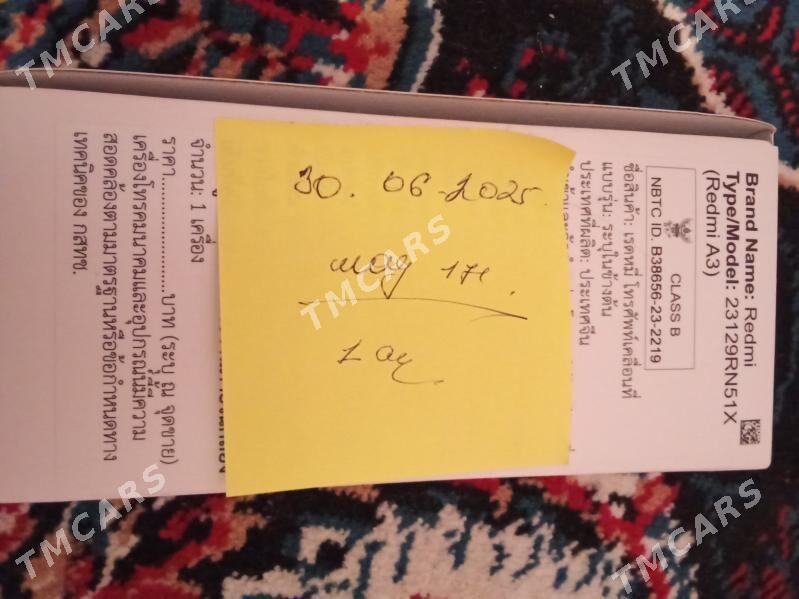 TMCARS
TMCARS
30. 06-2025.
TMCARS
1 ay
Brand Name: Redmi
Type/Model: 23129RN51X
(Redmi A3)
CLASS B
NBTC ID. B38656-23-2219
ชื่อสินค้า: เรดหมี่ โทรศัพท์เคลื่อนที่
แบบรุ่น: ระบุในข้างต้น
ประเทศที่ผลิต: ประเทศจีน
จำนวน: 1 เครื่อง
ราคา....................บาท (ระบุ ณ จุดขาย)
เครื่องโทรคมนาคมและอุปกรณ์นี้มีความ
สอดคล้องตามมาตรฐานหรือข้อกำหนดทาง
เทคนิคของ กสทช.
TMCARS
TMCARS
TMCARS